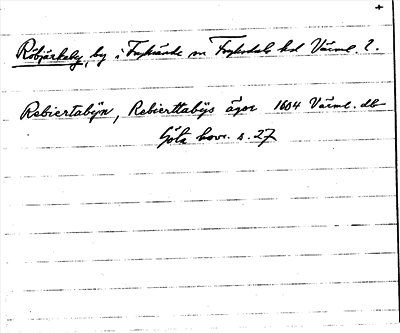 +
Röbjörkeby, by i Fryksände sn Fryksdals hd Värml. l.
Rebiertabÿn, Rebierttabÿs ägor 1604 Värml. db
Göta hovr. s. 27